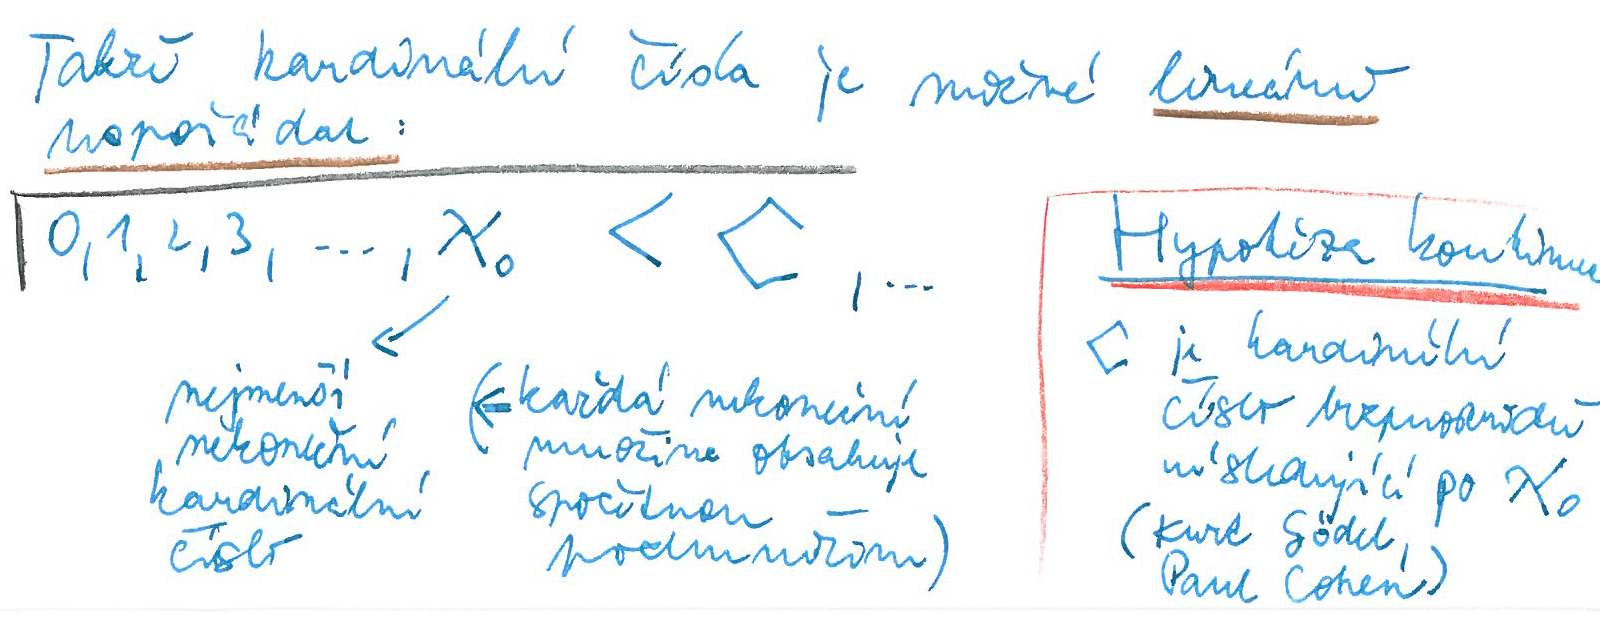 Takže kardinální čísla je možné lineárně
uspořádat:
0, 1, 2, 3, ..., ℵ₀ < C, ...
nejmenší
nekonečné
kardinální
číslo
(⇐ každá nekonečná
množina obsahuje
spočetnou
podmnožinu)
Hypotéza kontinua
C je kardinální
číslo bezprostředně
následující po ℵ₀
(Kurt Gödel,
Paul Cohen)